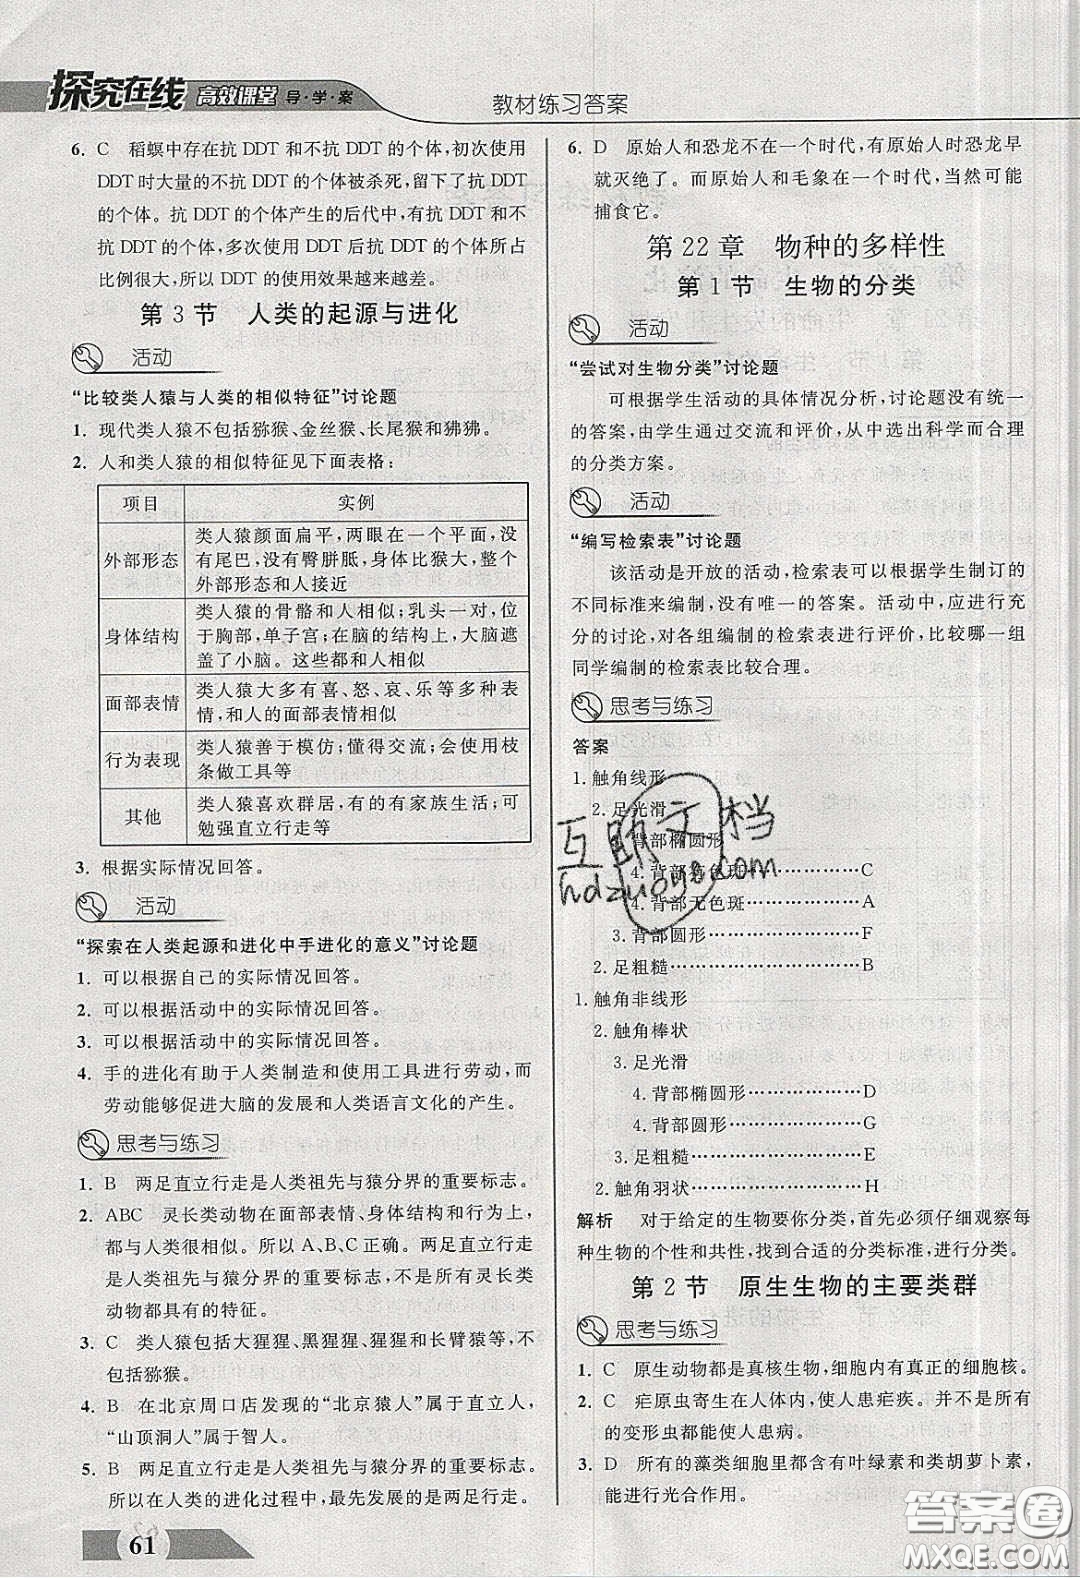 探究在线 高效课堂 导·学·案
教材练习答案
6. C 稻螟中存在抗 DDT 和不抗 DDT 的个体,初次使用
DDT 时大量的不抗 DDT 的个体被杀死,留下了抗 DDT
的个体。抗 DDT 的个体产生的后代中,有抗 DDT 和不
抗 DDT 的个体,多次使用 DDT 后抗 DDT 的个体所占
比例很大,所以 DDT 的使用效果越来越差。
第 3 节 人类的起源与进化
活动
“比较类人猿与人类的相似特征”讨论题
1. 现代类人猿不包括猕猴、金丝猴、长尾猴和狒狒。
2. 人和类人猿的相似特征见下面表格:
项目 实例
外部形态 类人猿颜面扁平,两眼在一个平面,没
有尾巴,没有臀胼胝,身体比猴大,整个
外部形态和人接近
身体结构 类人猿的骨骼和人相似;乳头一对,位
于胸部,单子宫;在脑的结构上,大脑遮
盖了小脑。这些都和人相似
面部表情 类人猿大多有喜、怒、哀、乐等多种表
情,和人的面部表情相似
行为表现 类人猿善于模仿;懂得交流;会使用枝
条做工具等
其他 类人猿喜欢群居,有的有家族生活;可
勉强直立行走等
3. 根据实际情况回答。
活动
“探索在人类起源和进化中手进化的意义”讨论题
1. 可以根据自己的实际情况回答。
2. 可以根据活动中的实际情况回答。
3. 可以根据活动中的实际情况回答。
4. 手的进化有助于人类制造和使用工具进行劳动,而
劳动能够促进大脑的发展和人类语言文化的产生。
思考与练习
1. B 两足直立行走是人类祖先与猿分界的重要标志。
2. ABC 灵长类动物在面部表情、身体结构和行为上,
都与人类很相似。所以 A、B、C 正确。两足直立行走
是人类祖先与猿分界的重要标志,并不是所有灵长类
动物都具有的特征。
3. C 类人猿包括大猩猩、黑猩猩、猩猩和长臂猿等,不
包括猕猴。
4. B 在北京周口店发现的“北京猿人”属于直立人,
“山顶洞人”属于智人。
5. B 两足直立行走是人类祖先与猿分界的重要标志。
所以在人类的进化过程中,最先发展的是两足行走。
61
6. D 原始人和恐龙不在一个时代,有原始人时恐龙早
就灭绝了。而原始人和毛象在一个时代,当然可能
捕食它。
第 22 章 物种的多样性
第 1 节 生物的分类
活动
“尝试对生物分类”讨论题
可根据学生活动的具体情况分析,讨论题没有统一
的答案,由学生通过交流和评价,从中选出科学而合理
的分类方案。
活动
“编写检索表”讨论题
该活动是开放的活动,检索表可以根据学生制订的
不同标准来编制,没有唯一的答案。活动中,应进行充
分的讨论,对各组编制的检索表进行评价,比较哪一组
同学编制的检索表比较合理。
思考与练习
答案
1. 触角线形
2. 足光滑
3. 背部椭圆形
4. 背部有色斑………………C
4. 背部无色斑………………A
3. 背部圆形………………F
2. 足粗糙………………B
1. 触角非线形
2. 触角棒状
3. 足光滑
4. 背部椭圆形………………D
4. 背部圆形………………G
3. 足粗糙………………E
2. 触角羽状………………H
解析 对于给定的生物要你分类,首先必须仔细观察每
种生物的个性和共性,找到合适的分类标准,进行分类。
第 2 节 原生生物的主要类群
思考与练习
1. C 原生动物都是真核生物,细胞内有真正的细胞核。
2. C 疟原虫寄生在人体内,使人患疟疾。并不是所有
的变形虫都能使人患病。
3. D 所有的藻类细胞里都含有叶绿素和类胡萝卜素,
能进行光合作用。
互助文档
hdzuoye.com
答案圈
MXQE.COM